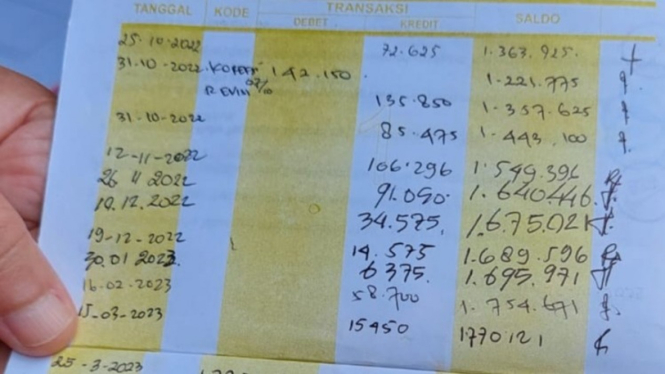 TANGGAL KODE TRANSAKSI SALDO
DEBET KREDIT
25.10.2022 72.625 1.363.925.
31.10-2022 142.150. 1.221.775
135.850 1.357.625
31.10-2022 85.475 1.443.100
12-11-2022 106.296 1.549.396
26 11 2022 91.050. 1.640446.
10.12.2022 34.575. 1.675.021
19-12-2022 14.575 1.689.596
30.01 2023. 6375. 1.695.971
16-02-2023 58.700 1.754.671
15-03-2023 15450 1770121
25-3-2023